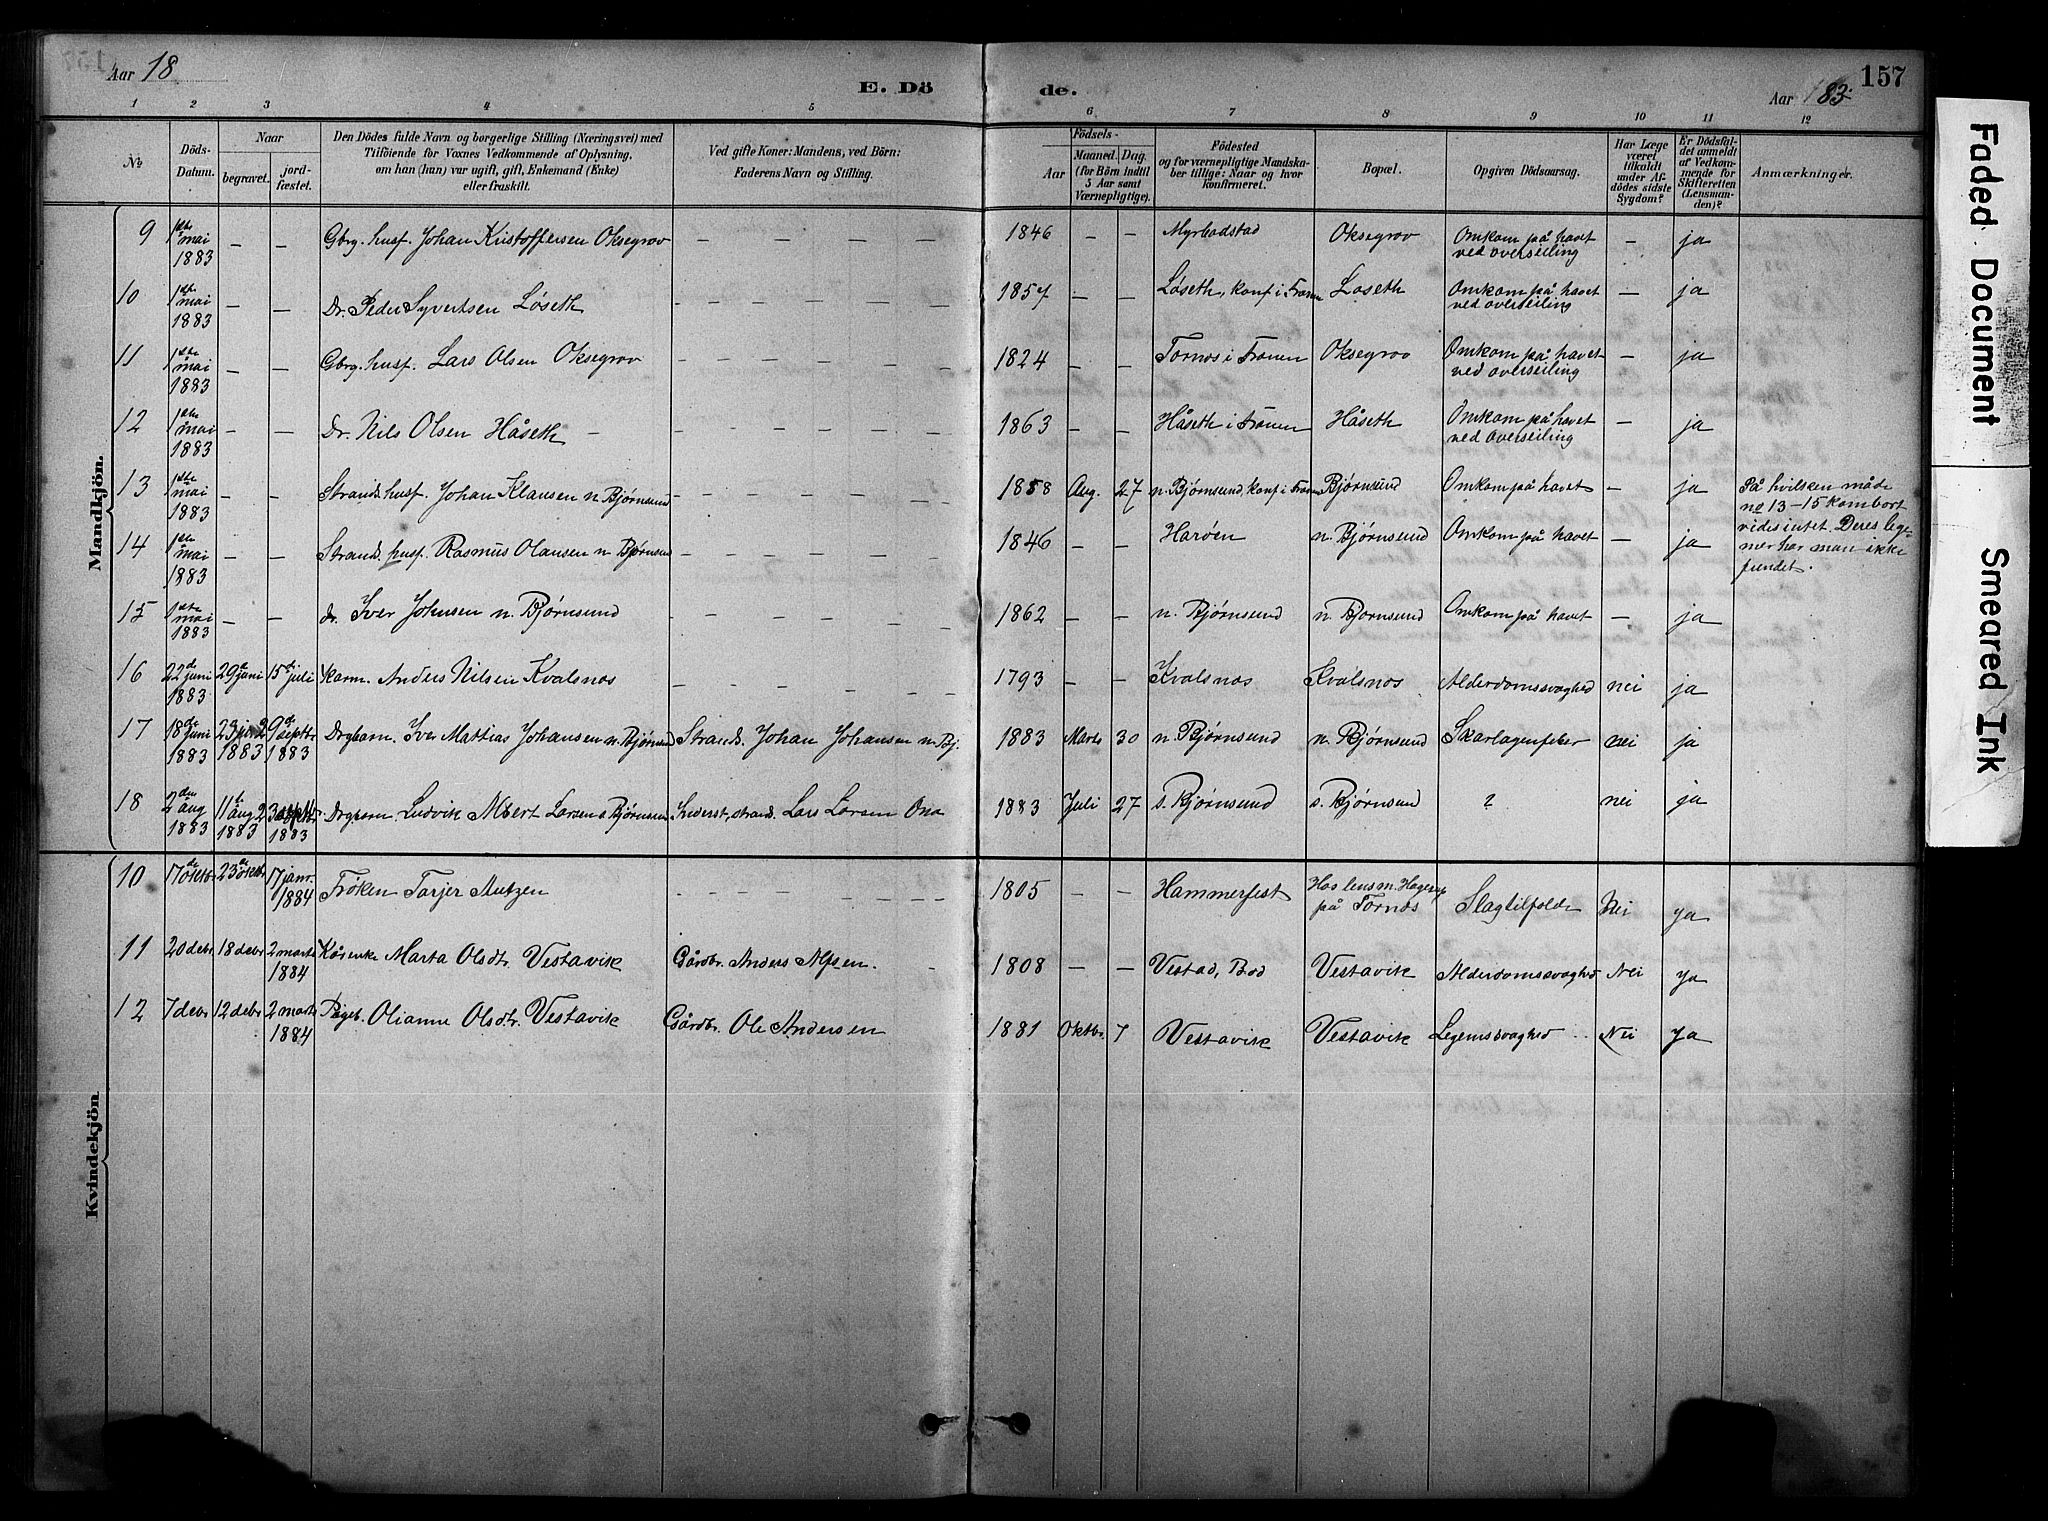 157
Aar 18
E. Dö de.
Aar 1883
1 2 3 4 5 6 7 8 9 10 11 12
№
Döds-Datum.
Naar
begravet.
jordfæstet.
Den Dödes fulde Navn og borgerlige Stilling (Næringsvei) med
Tilföiende for Voxnes Vedkommende af Oplysning,
om han (hun) var ugift, gift, Enkemand (Enke)
eller fraskilt.
Ved gifte Koner: Mandens, ved Börn:
Faderens Navn og Stilling.
Födsels-
Aar
Maaned. Dag.
(for Börn indtil
5 Aar samt
Værnepligtige).
Födested
og for værnepligtige Mandska-
ber tillige: Naar og hvor
konfirmeret.
Bopæl.
Opgiven Dödsaarsag.
Har Læge
været
tilkaldt
under Af-
dödes sidste
Sygdom?
Er Dödsfal-
det anmeldt
af Vedkom-
mende for
Skifteretten
(Lensman-
den)?
Anmærkninger.
Mandkjön.
9 1ste mai 1883 – – Gbrg. husf. Johan Kristoffersen Oksegrov – 1846 – – Myrbostad Oksegrov Omkom på havet ved overseiling – ja
10 1ste mai 1883 – – Dr. Peder Syvertsen Løseth – 1857 – – Løseth, konf i Frænen Løseth Omkom på havet ved overseiling – ja
11 1ste mai 1883 – – Gbrg. husf. Lars Olsen Oksegrov – 1824 – – Tornes i Frænen Oksegrov Omkom på havet ved overseiling – ja
12 1ste mai 1883 – – Dr. Nils Olsen Håseth – 1863 – – Håseth i Frænen Håseth Omkom på havet ved overseiling – ja
13 1ste mai 1883 – – Strands. husf. Johan Klausen n. Bjørnsund – 1858 Aug. 27 n. Bjørnsund, konf i Frænen Bjørnsund Omkom på havet – ja På hvilken måde no 13–15 kom bort vides intet. Deres legemer har man ikke fundet.
14 1ste mai 1883 – – Strands. husf. Rasmus Olausen n. Bjørnsund – 1846 – – Harøen n. Bjørnsund Omkom på havet – ja
15 1ste mai 1883 – – dr. Iver Johnsen n. Bjørnsund – 1862 – – n. Bjørnsund n. Bjørnsund Omkom på havet – ja
16 22de juni 1883 29de juni 15de juli Kårm. Anders Nilsen Kvalsnes – 1793 – – Kvalsnes Kvalsnes Alderdomssvaghed nei ja
17 18de juni 1883 23 juni 1883 29de septbr 1883 Drgbarn. Iver Mathias Johansen n. Bjørnsund Strands. Johan Johansen n. Bj. 1883 Marts 30 n. Bjørnsund n. Bjørnsund Skarlagenfeber nei ja
18 2den aug 1883 11te aug 1883 23 septbr 1883 Drgbarn. Ludvik Albert Larsen s Bjørnsund Inderst, strands. Lars Larsen Ona 1883 Juli 27 s. Bjørnsund s. Bjørnsund ? nei ja
Kvindekjön.
10 17de oktbr 23de oktbr 17 janr. 1884 Frøken Tarjer Mutzen – 1805 – – Hammerfest Hos lensm. Hagerup på Tornes Slagtilfælde Nei ja
11 20 debr 18 debr 2 marts 1884 Kårenke Marta Olsdtr. Vestavik Gårdbr. Anders Alfsen. – 1808 – – Vestad, Bod Vestavik Alderdomssvaghed Nei ja
12 7 debr 12 debr 2 marts 1884 Pigeb. Olianne Olsdtr. Vestavik Gårdbr. Ole Andersen 1881 Oktbr. 7 Vestavik Vestavik Legemssvaghed Nei ja
Faded Document
Smeared Ink